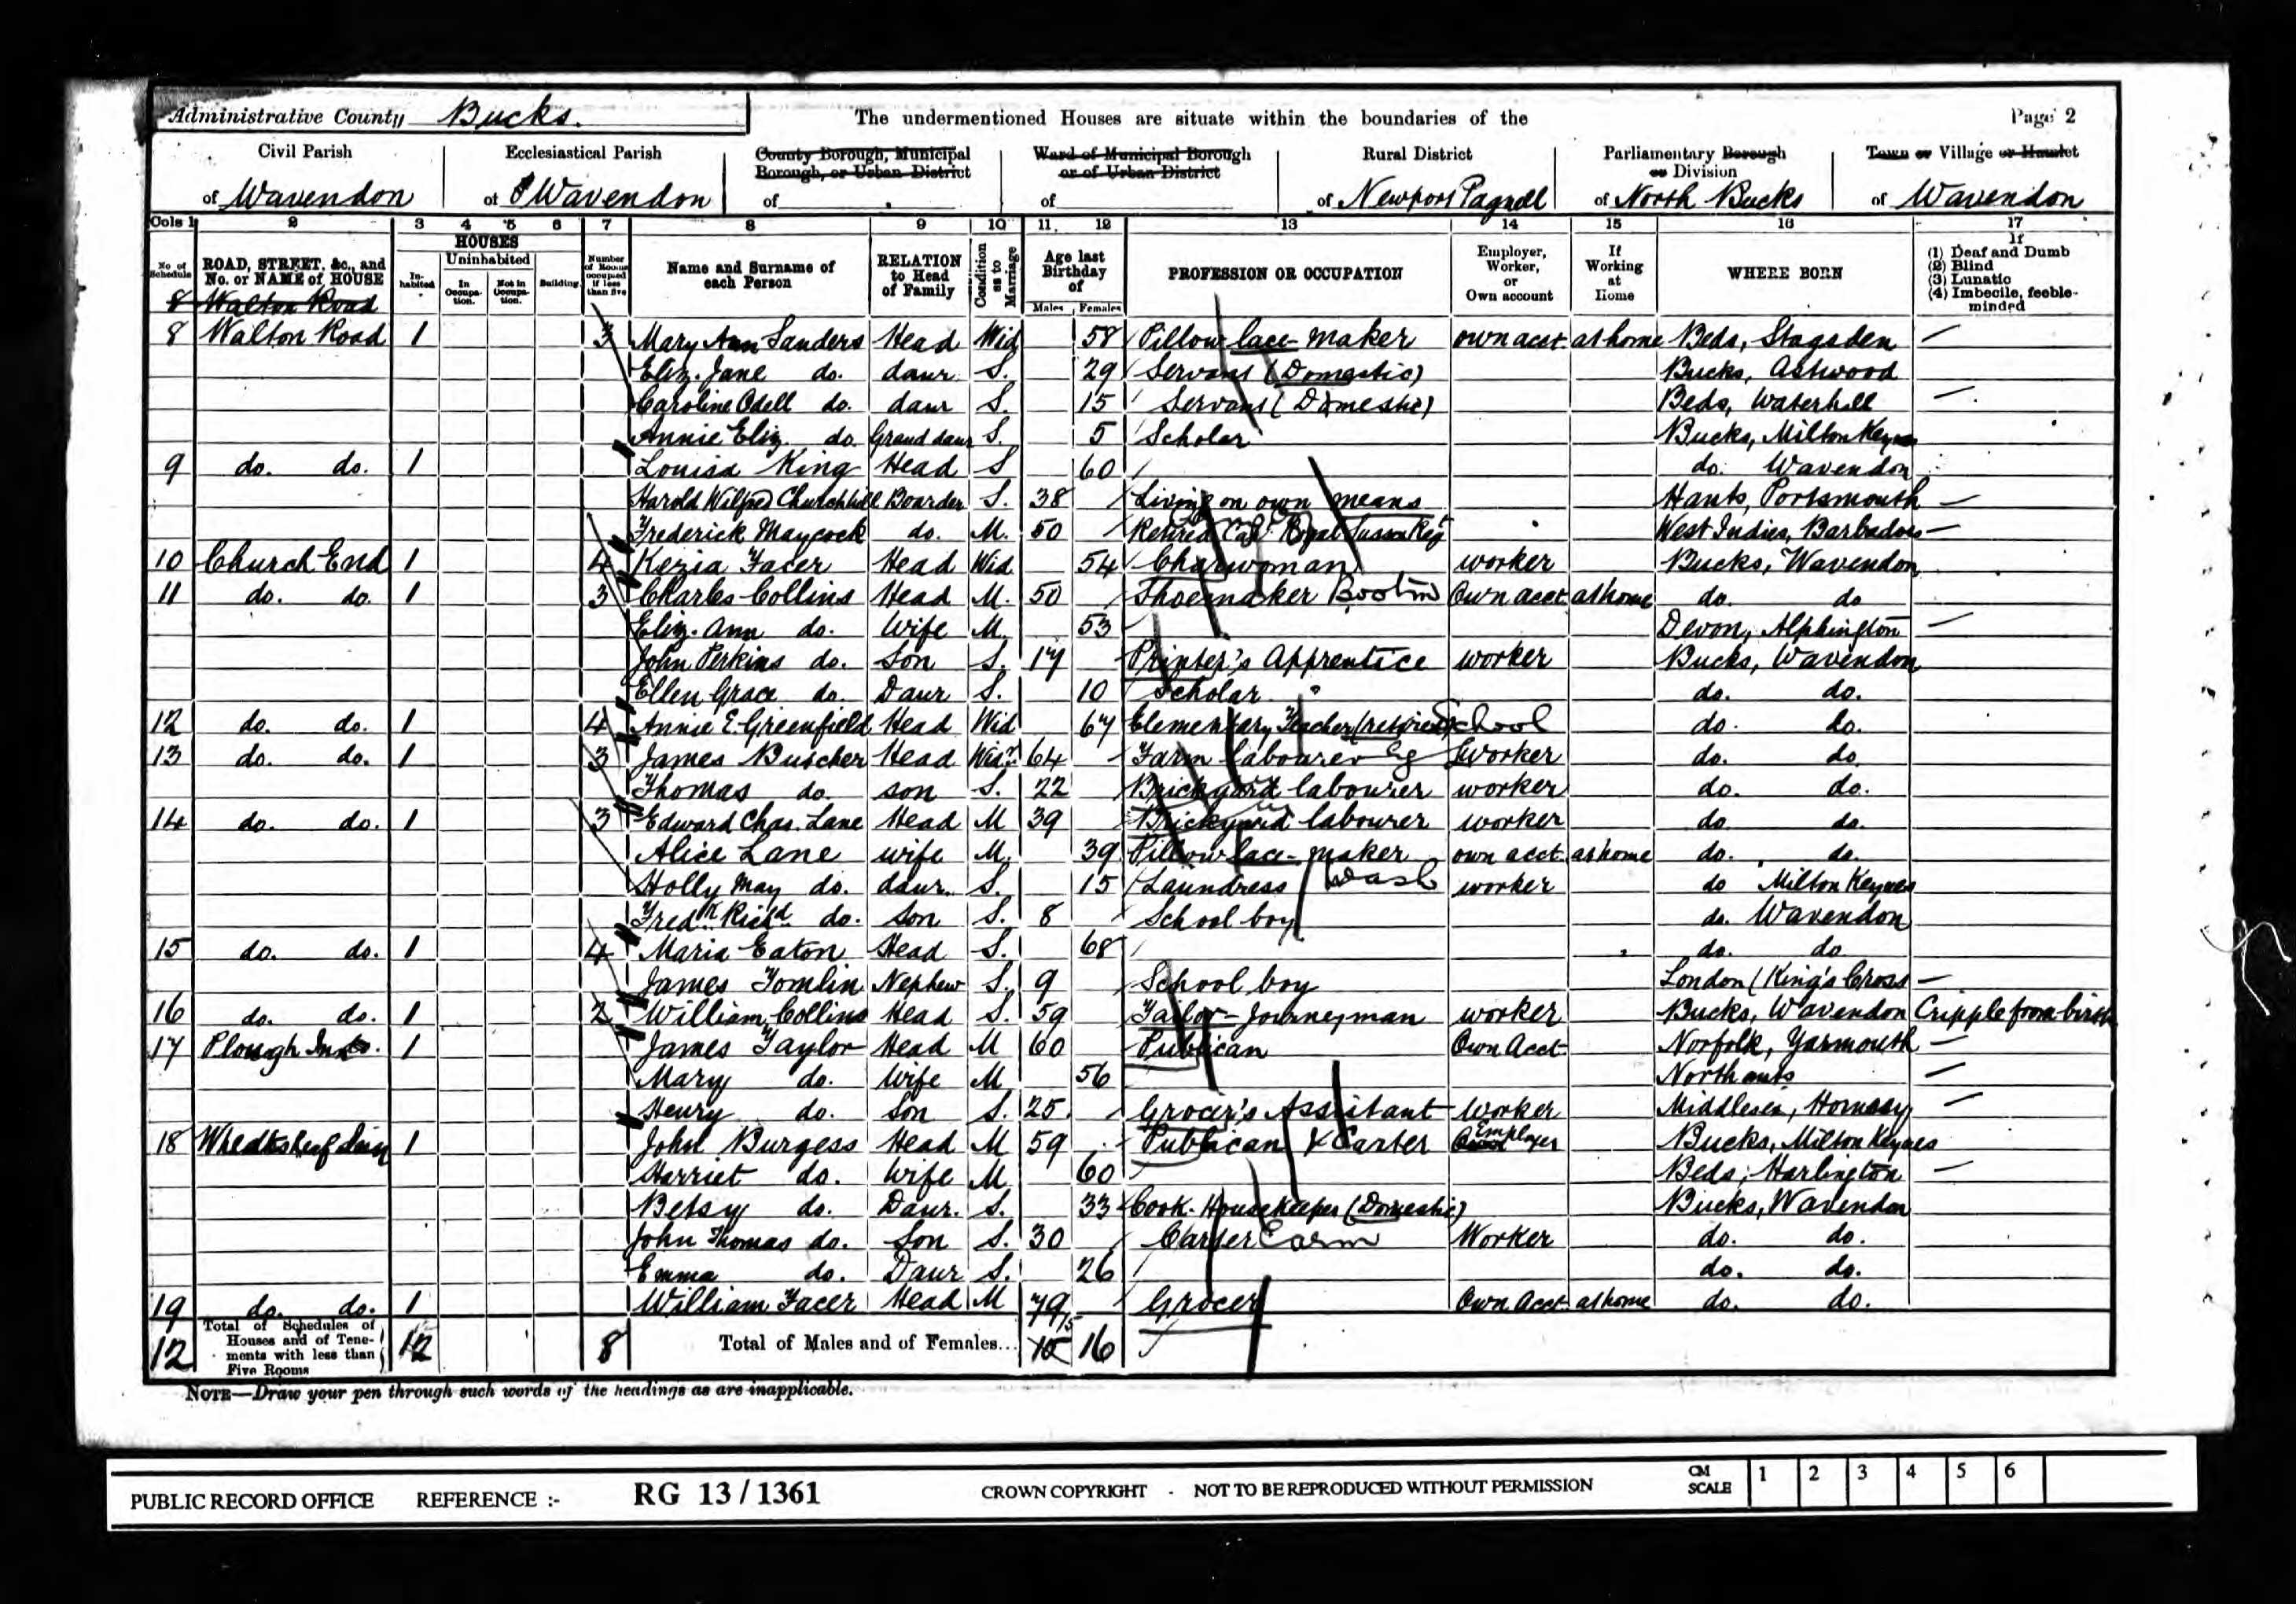 Administrative County Bucks. The undermentioned Houses are situate within the boundaries of the Page 2
Civil Parish Ecclesiastical Parish County Borough, Municipal Borough, or Urban District Ward of Municipal Borough or of Urban District Rural District Parliamentary Borough or Division Town or Village or Hamlet
of Wavendon of Wavendon of of of Newport Pagnell of North Bucks of Wavendon
Cols 1 2 3 4 5 6 7 8 9 10 11 12 13 14 15 16 17
No of Schedule ROAD, STREET, &c., and No. or NAME of HOUSE HOUSES Inhabited Uninhabited In Occupation. Not in Occupation. Building Number of Rooms occupied if less than five Name and Surname of each Person RELATION to Head of Family Condition as to Marriage Age last Birthday of Males Females PROFESSION OR OCCUPATION Employer, Worker, or Own account If Working at Home WHERE BORN If (1) Deaf and Dumb (2) Blind (3) Lunatic (4) Imbecile, feeble-minded
8 Walton Road
8 Walton Road 1 3 Mary Ann Sanders Head Wid 58 Pillow lace-maker own acct at home Beds, Stagsden —
Eliz. Jane do. daur. S. 29 Servant (Domestic) Bucks, Astwood
Caroline Odell do. daur S. 15 Servant (Domestic) Beds, Waterhall —
Annie Eliz. do. Grand daur S. 5 Scholar Bucks, Milton Keynes
9 do. do. 1 Louisa King Head S 60 do. Wavendon
Harold Wilfred Churchill Boarder S. 38 Living on own means Hants, Portsmouth —
Frederick Maycock do. M. 50 Retired Capt. Royal Sussex Reg West Indies, Barbadoes —
10 Church End 1 4 Kezia Facer Head Wid 54 Charwoman worker Bucks, Wavendon
11 do. do. 1 3 Charles Collins Head M. 50 Shoemaker Boot Own acct at home do. do
Eliz. Ann do. Wife M. 53 Devon, Alphington —
John Perkins do. Son S. 17 Printer's Apprentice worker Bucks, Wavendon
Ellen Grace do. Daur S. 10 Scholar do. do.
12 do. do. 1 4 Annie E. Greenfield Head Wid 67 Elementary Teacher (retired) School do. do.
13 do. do. 1 3 James Butcher Head Widr 64 Farm labourer worker do. do.
Thomas do. son S. 22 Brickyard labourer worker do. do.
14 do. do. 1 3 Edward Chas. Lane Head M 39 Brickyard labourer worker do. do.
Alice Lane wife M. 39 Pillow lace-maker own acct at home do. do.
Holly May do. daur. S. 15 Laundress Wash worker do Milton Keynes
Fredk. Richd do. Son S. 8 School boy do. Wavendon
15 do. do. 1 4 Maria Eaton Head S. 68 do. do
James Tomlin Nephew S. 9 School boy London (King's Cross —
16 do. do. 1 2 William Collins Head S. 59 Tailor - Journeyman worker Bucks, Wavendon Cripple from birth
17 Plough Inn 1 James Taylor Head M 60 Publican Own Acct Norfolk, Yarmouth —
Mary do. Wife M 56 Northants —
Henry do. Son S. 25 Grocer's Assistant Worker Middlesex, Hornsey —
18 Wheatsheaf Inn 1 John Burgess Head M 59 Publican & Carter Employer Bucks, Milton Keynes
Harriet do. Wife M 60 Beds, Harlington —
Betsy do. Daur. S. 33 Cook-Housekeeper (Domestic) Bucks, Wavendon
John Thomas do. Son S. 30 Carter Worker do. do.
Emma do. Daur S. 26 do. do.
19 do. do. 1 William Facer Head M 79 Grocer Own Acct at home do. do.
12 Total of Schedules of Houses and of Tenements with less than Five Rooms 12 8 Total of Males and of Females... 15 16
NOTE—Draw your pen through such words of the headings as are inapplicable.
PUBLIC RECORD OFFICE REFERENCE :- RG 13 / 1361 CROWN COPYRIGHT - NOT TO BE REPRODUCED WITHOUT PERMISSION CM SCALE 1 2 3 4 5 6